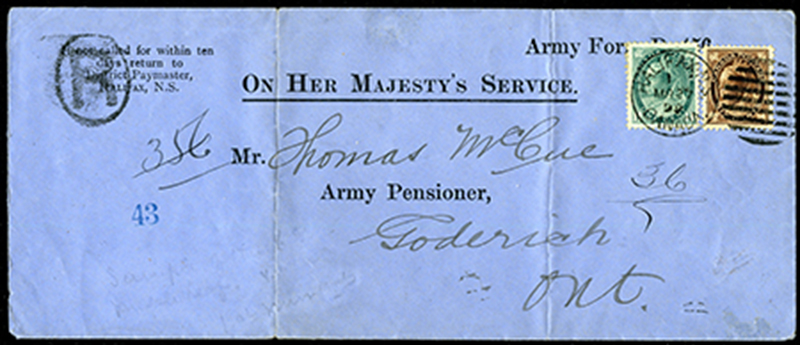 If not called for within ten
days return to
District Paymaster,
HALIFAX, N.S.
R
Army Form
ON HER MAJESTY'S SERVICE.
HALIFAX
CANADA
356
Mr. Thomas McCue
36
Army Pensioner,
43
Goderich
Ont.